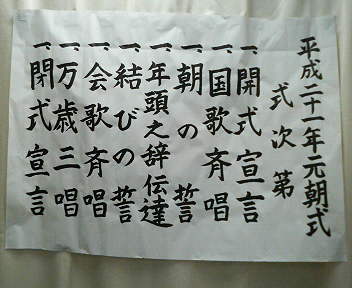 平成二十一年元朝式
式次第
一、開式宣言
一、国歌斉唱
一、朝の誓
一、年頭之辞伝達
一、結びの誓
一、会歌斉唱
一、万歳三唱
一、閉式宣言